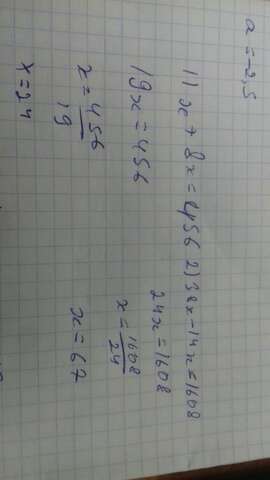 a = -2,5
11x + 8x = 456
19x = 456
x = 456/19
x = 24
2) 38x - 14x = 1608
24x = 1608
x = 1608/24
x = 67